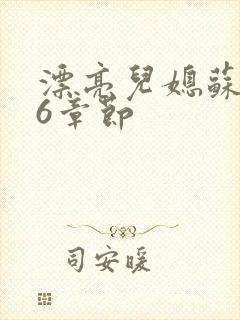 漂亮兒媳蘇
6章節
司安暖